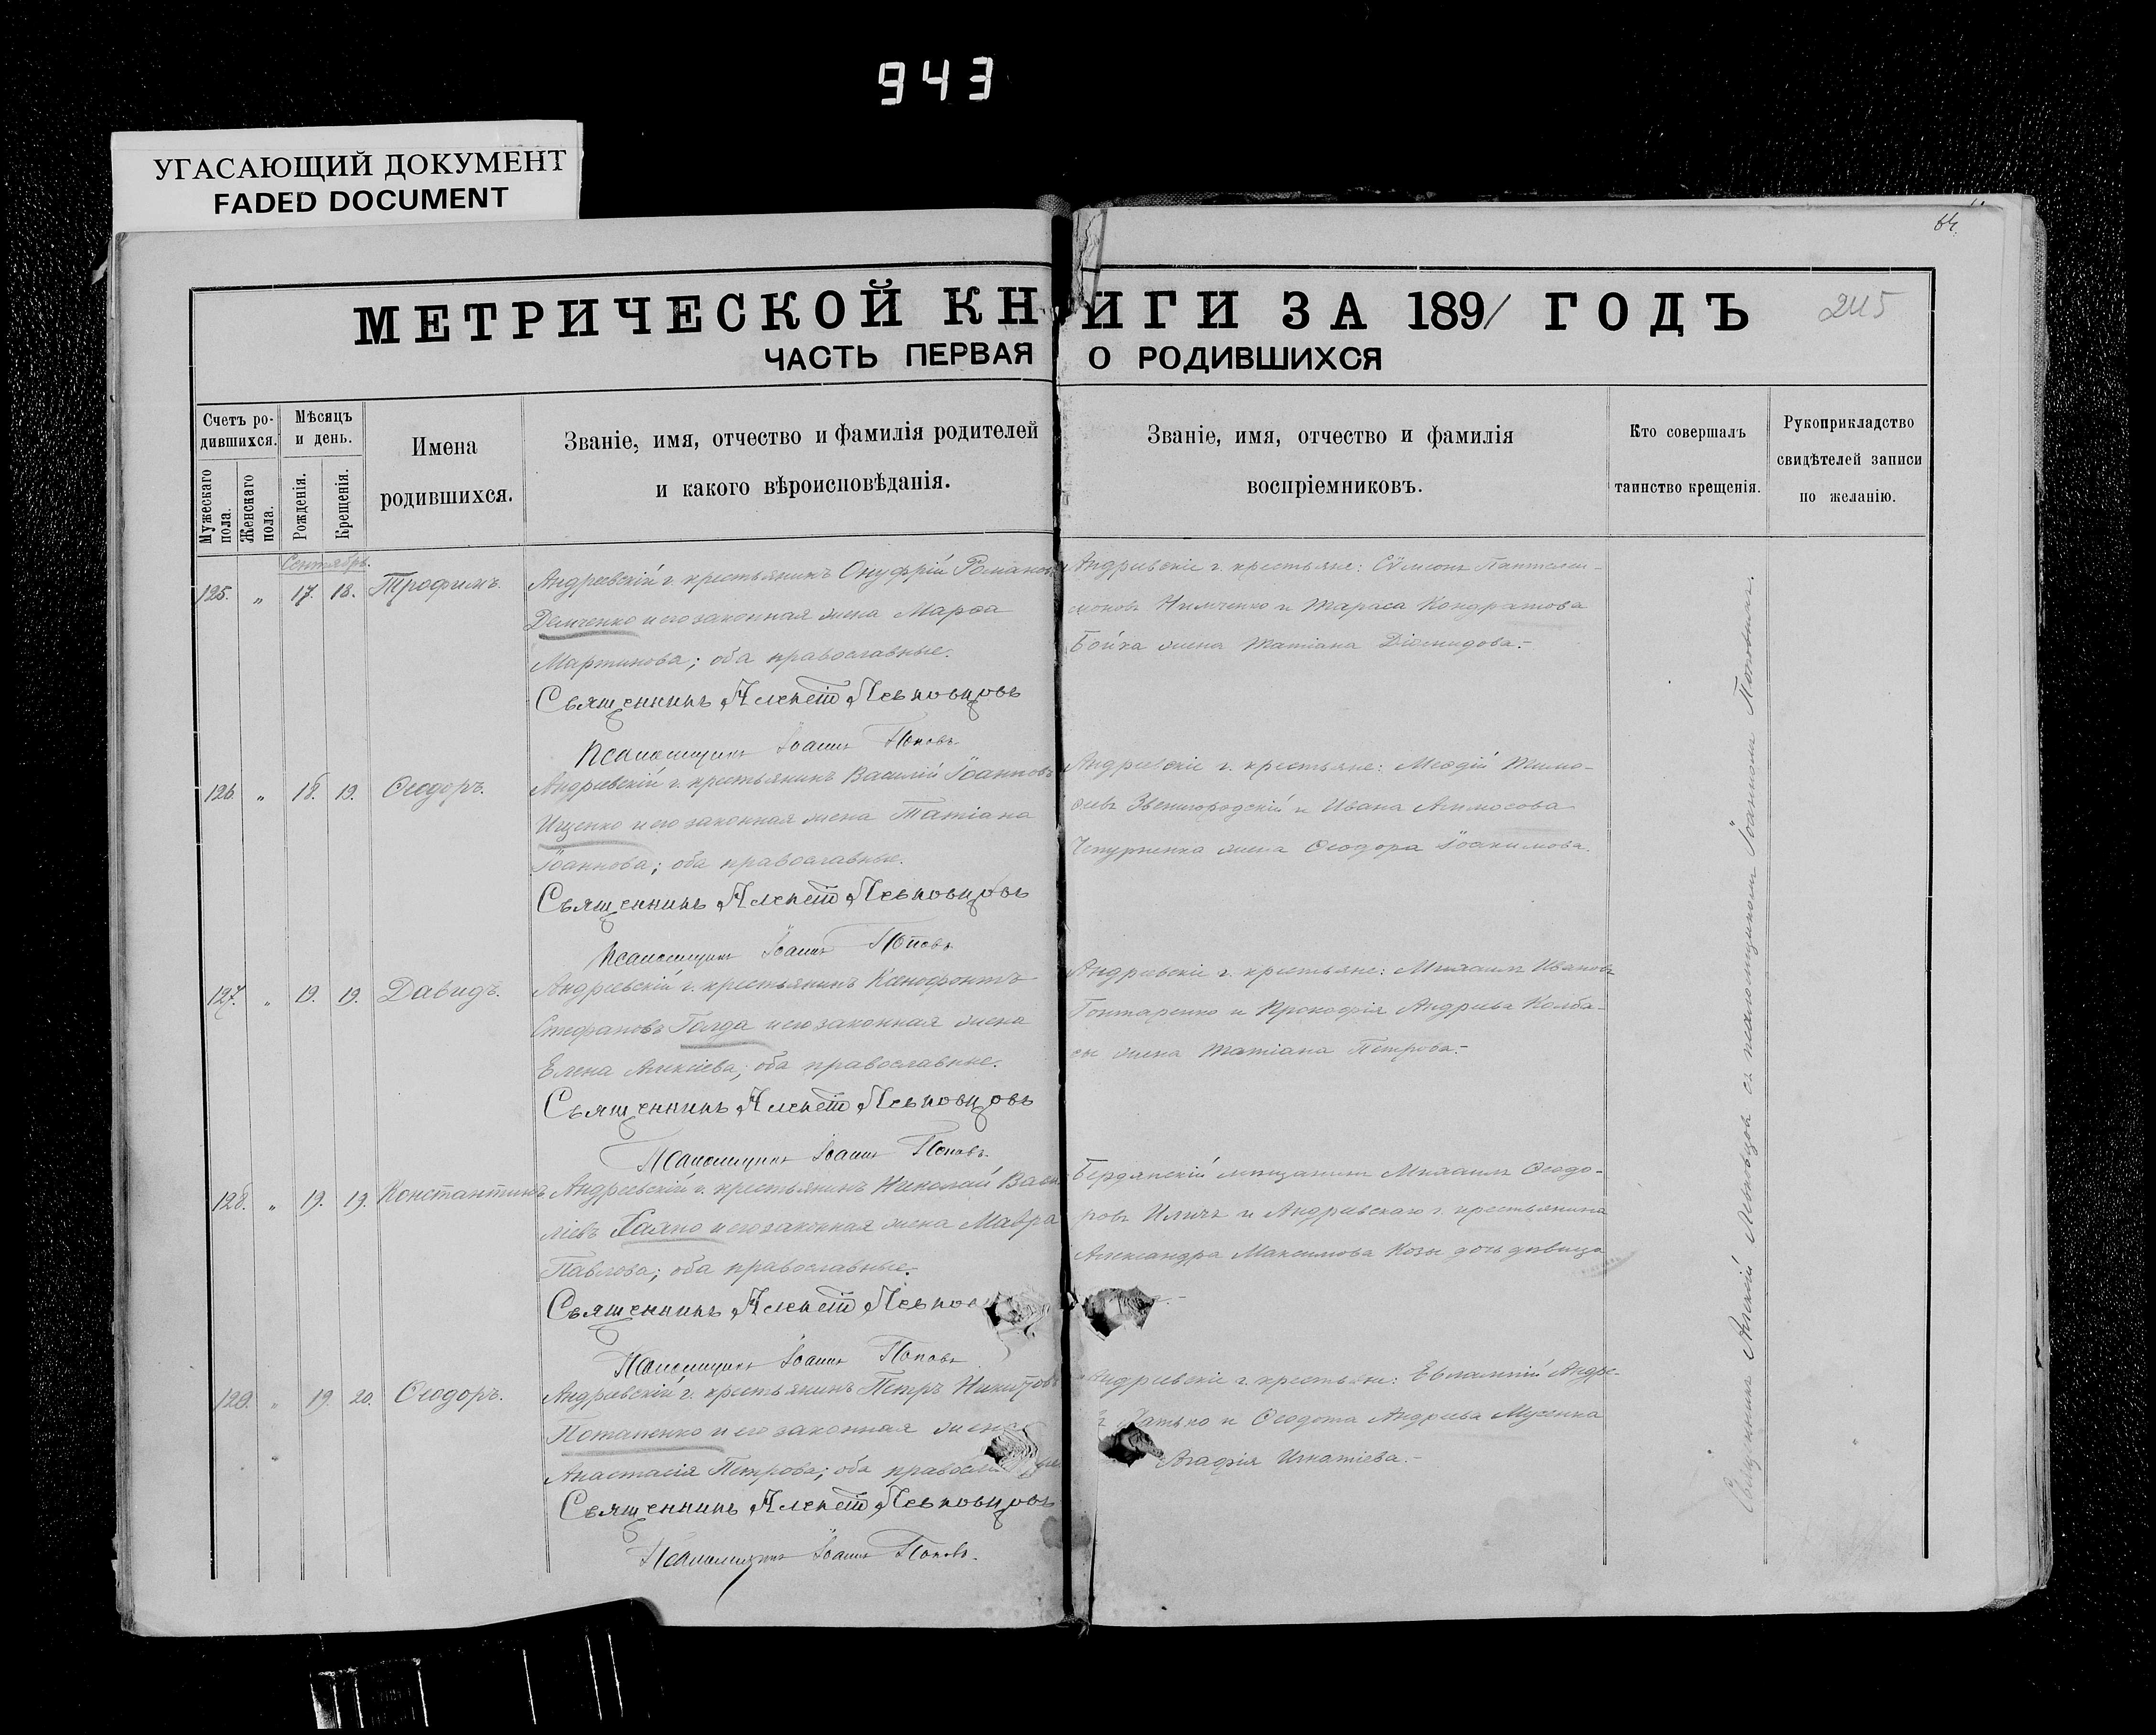 943
УГАСАЮЩИЙ ДОКУМЕНТ
FADED DOCUMENT
64.
МЕТРИЧЕСКОЙ КНИГИ ЗА 1891 ГОДЪ
245
ЧАСТЬ ПЕРВАЯ О РОДИВШИХСЯ
Счетъ ро-
дившихся.
Мужескаго пола.
Женскаго пола.
Мѣсяцъ
и день.
Рожденія.
Крещенія.
Имена
родившихся.
Званіе, имя, отчество и фамилія родителей
и какого вѣроисповѣданія.
Званіе, имя, отчество и фамилія
воспріемниковъ.
Кто совершалъ
таинство крещенія.
Рукоприкладство
свидѣтелей записи
по желанію.
Сентябрь.
125. " 17. 18. Трофимъ.
Андреевскій г. крестьянинъ Онуфрій Романовъ
Демченко и его законная жена Марѳа
Мартинова; оба православные.
Священникъ Алексій Левковцовъ
Псаломщикъ Іоаннъ Поповъ
Андреевскіе г. крестьяне: Сѵмеонъ Пантелеи-
моновъ Нимченко и Тараса Кондратова
Бойка жена Татіана Діомидова.-
126. " 18. 19. Ѳеодоръ.
Андреевскій г. крестьянинъ Василій Іоанновъ
Ищенко и его законная жена Татіана
Іоаннова; оба православные.
Священникъ Алексій Левковцовъ
Псаломщикъ Іоаннъ Поповъ
Андреевскіе г. крестьяне: Меѳодій Тимо-
ѳеевъ Звенигородскій и Ивана
Чепурненка жена Ѳеодора Іоакимова.
127. " 19. 19. Давидъ.
Андреевскій г. крестьянинъ Ксенофонтъ
Стефановъ Голда и его законная жена
Елена Алексіева; оба православные.
Священникъ Алексій Левковцовъ
Псаломщикъ Іоаннъ Поповъ.
Андреевскіе г. крестьяне: Михаилъ Ивановъ
Гонтаренко и Прокофія Андреева Колба-
сы жена Татіана Петрова.-
128. " 19. 19. Константинъ
Андреевскій г. крестьянинъ Николай Васи-
ліевъ и его законная жена Мавра
Павлова; оба православные.
Священникъ Алексій
Псаломщикъ Іоаннъ Поповъ
Бердянскій мѣщанинъ Михаилъ Ѳеодо-
ровъ Иличъ и Андреевскаго г. крестьянина
Александра Максимова Козы дочь дѣвица
129. " 19. 20. Ѳеодоръ.
Андреевскій г. крестьянинъ Петръ Никитовъ
Потапенко и его законная жена
Анастасія Петрова; оба
Священникъ Алексій Левковцовъ
Псаломщикъ Іоаннъ Поповъ.
Андреевскіе г. крестьяне: Евлампій Андре-
и Ѳеодота Андреева Мусенка
Агафія Игнатіева.-
Священникъ Алексій Левковцовъ съ псаломщикомъ Іоанномъ Поповымъ.